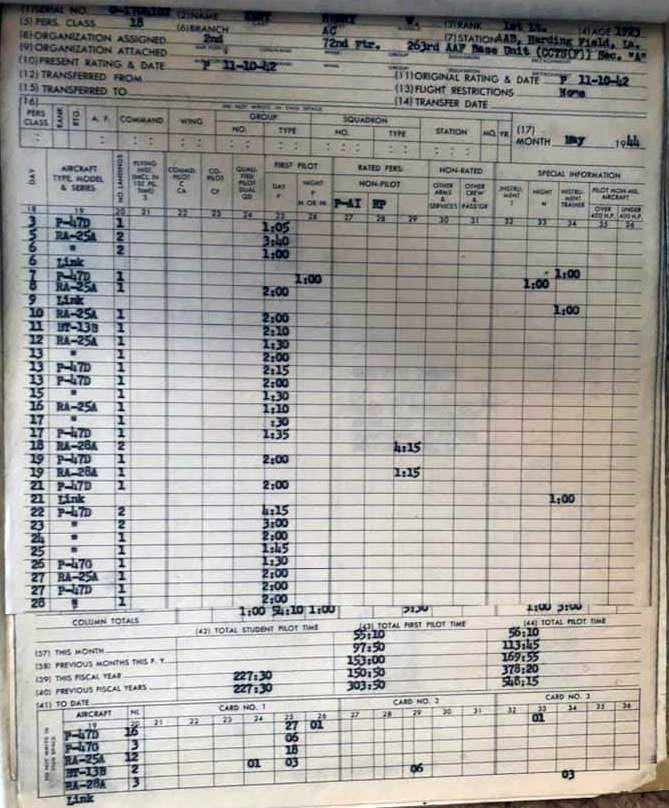 (1)SERIAL NO. (2)NAME HENRY W. (3)RANK 1st Lt. (4)AGE 1923
(5) PERS. CLASS 18 (6)BRANCH AC (7)STATION AAB, Harding Field, La.
(8)ORGANIZATION ASSIGNED 2nd 72nd Ftr. 263rd AAF Base Unit (OCTS(F)) Sec. "A"
(9)ORGANIZATION ATTACHED
(10)PRESENT RATING & DATE P 11-10-42 (11)ORIGINAL RATING & DATE P 11-10-42
(12) TRANSFERRED FROM (13)FLIGHT RESTRICTIONS None
(15) TRANSFERRED TO (14) TRANSFER DATE
(16) DO NOT WRITE IN THIS SPACE
PERS CLASS RANK RTG. A. F. COMMAND WING GROUP NO. TYPE SQUADRON NO. TYPE STATION MO. YR. (17) MONTH May 1944
DAY AIRCRAFT TYPE, MODEL & SERIES NO. LANDINGS FLYING INST. (INCL. IN 1ST PIL. TIME) S COMMD. PILOT C CA CO-PILOT CP QUALIFIED PILOT DUAL QD FIRST PILOT DAY P NIGHT P N OR NI RATED PERS. NON-PILOT P-AI RP NON-RATED OTHER ARMS & SERVICES OTHER CREW & PASS'GR SPECIAL INFORMATION INSTRUMENT I NIGHT N INSTRUMENT TRAINER PILOT NON-MIL. AIRCRAFT OVER 400 H.P. UNDER 400 H.P.
18 19 20 21 22 23 24 25 26 27 28 29 30 31 32 33 34 35 36
3 P-47D 1 1:05
5 RA-25A 2 3:40
6 " 2 1:00
6 Link 1:00
7 P-47D 1 1:00 1:00
8 RA-25A 1 2:00
9 Link 1:00
10 RA-25A 1 2:00
11 BT-13B 1 2:10
12 RA-25A 1 1:30
13 " 1 2:00
13 P-47D 1 2:15
13 P-47D 1 2:00
15 " 1 1:30
16 RA-25A 1 1:10
17 " 1 :30
17 P-47D 1 1:35
18 RA-28A 2 4:15
19 P-47D 1 2:00
19 RA-28A 1 1:15
21 P-47D 1 2:00
21 Link 1:00
22 P-47D 2 4:15
23 " 2 3:00
24 " 1 2:00
25 " 1 1:45
26 P-47G 1 1:30
27 RA-25A 1 2:00
27 P-47D 1 2:00
28 " 1 2:00
COLUMN TOTALS 1:00 54:10 1:00 5:30 1:00 3:00
(42) TOTAL STUDENT PILOT TIME (43) TOTAL FIRST PILOT TIME (44) TOTAL PILOT TIME
(37) THIS MONTH 55:10 56:10
(38) PREVIOUS MONTHS THIS F. Y. 97:50 113:45
(39) THIS FISCAL YEAR 153:00 169:55
(40) PREVIOUS FISCAL YEARS 227:30 150:50 378:20
(41) TO DATE 227:30 303:50 548:15
DO NOT WRITE IN THIS SPACE AIRCRAFT NL CARD NO. 1 CARD NO. 2 CARD NO. 3
19 20 21 22 23 24 25 26 27 28 29 30 31 32 33 34 35 36
P-47D 16 27 01 01
P-47G 3 06
RA-25A 12 18
BT-13B 2 01 03
RA-28A 3 06
Link 03